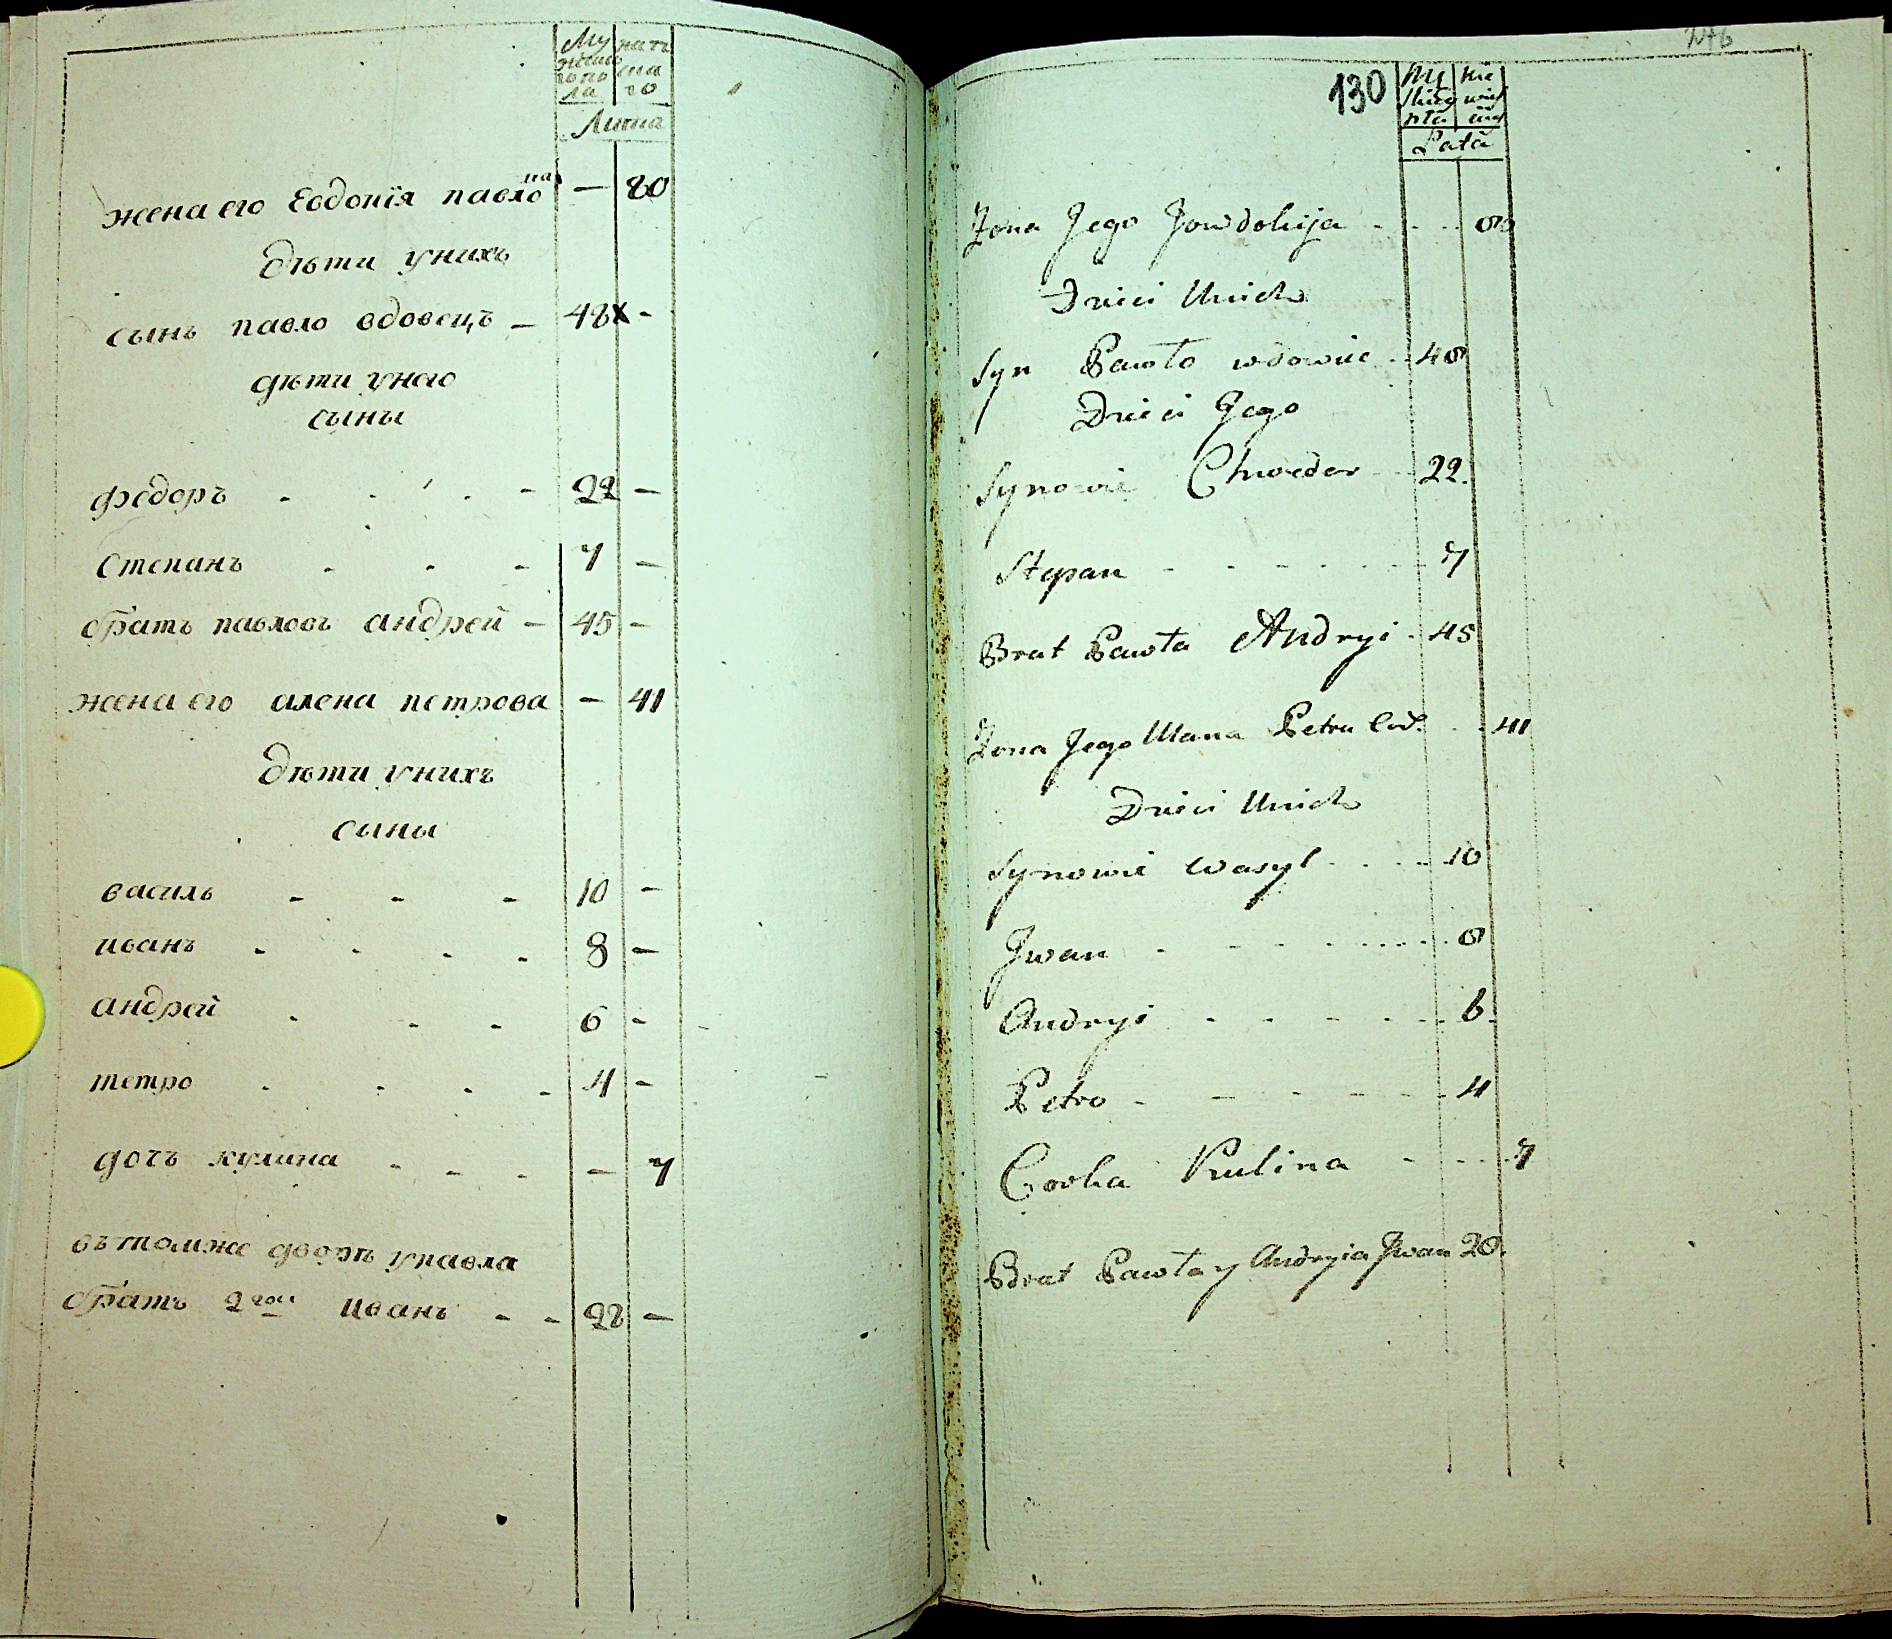 Му жеск
жеска
го по ска
ла го
Лѣта
жена его Евдокїя павло на — 80
дѣти унихъ
сынъ павло вдовецъ — 48 х -
дѣти унего
сыны
федоръ - - - - 22 —
Степанъ - - - 7 —
братъ павловъ андрей — 45 -
жена его алена петрова — 41
дѣти унихъ
сыны
василь - - - 10 -
иванъ - - - - 8 —
андрей - - - 6 -
петро - - - - 4 -
дочъ кулина - - - — 7
вътомже дворѣ упавла
братъ 2гои иванъ - - 28 —
130
Lata
Żona Jego Jowdokija - - - 80
Dzieci Unich
Syn Pawło wdowiec - - 48
Dzieci Jego
Synowie Chweder - - 22.
Stepan - - - - - - 7
Brat Pawła Andryi - 45
Żona Jego Ulana Petru - - 41
Dzieci Unich
Synowie Wasyl - - - - 10
Jwan - - - - - - - 8
Andryi - - - - - - 6
Petro - - - - - - 4
Corka Kulina - - - - 7
Brat Pawła y Andryia Jwan 28.